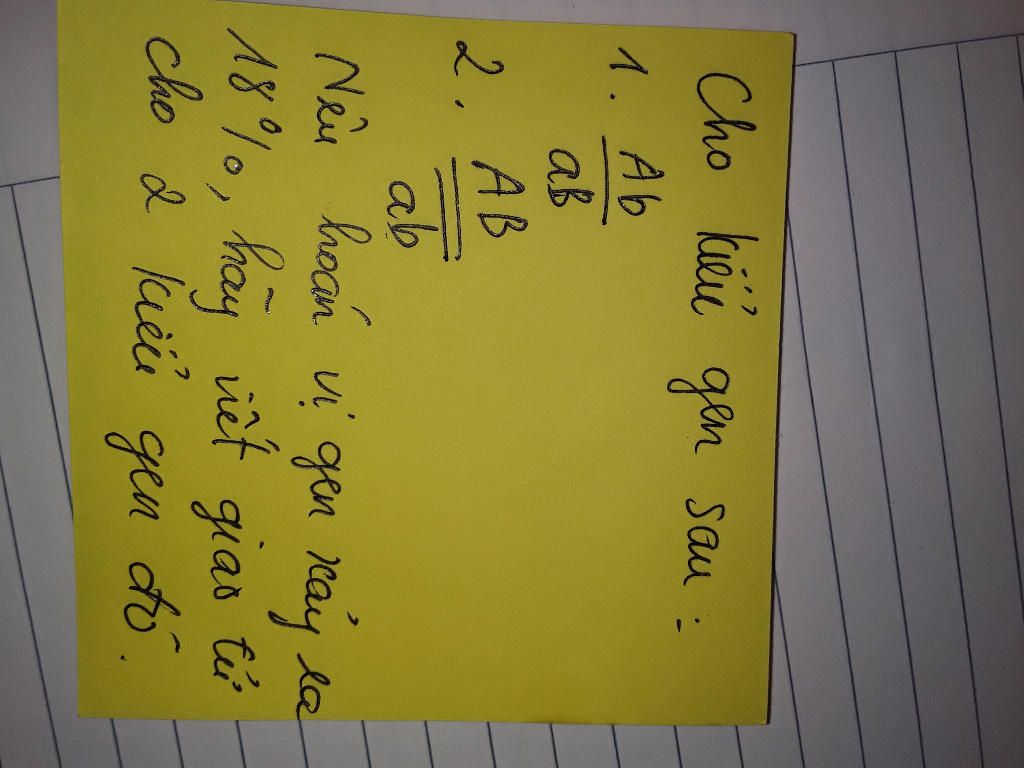 Cho kiểu gen sau :
1. Ab
aB
2. AB
ab
Nếu hoán vị gen xảy ra
18%, hãy viết giao tử
cho 2 kiểu gen đó.